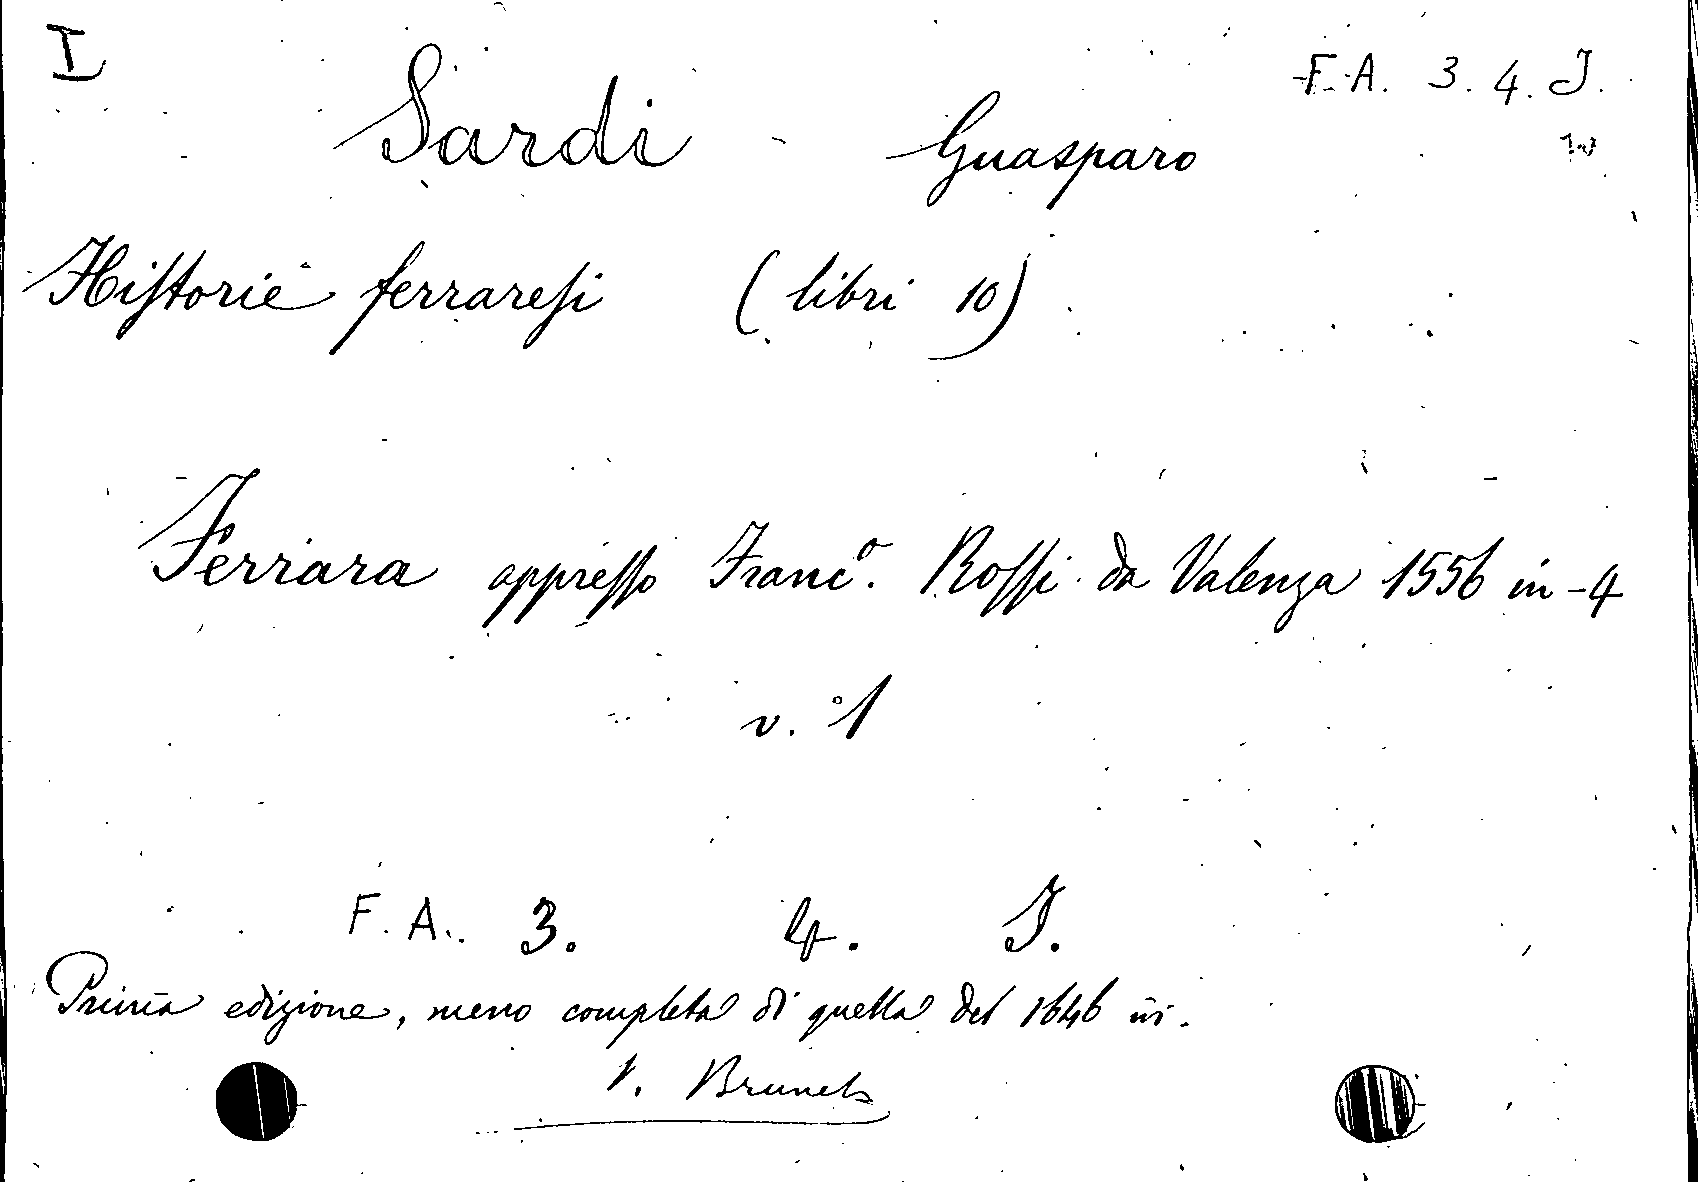 I
F. A. 3. 4. J.
Sardi - Guasparo
Hiſtorie ferrareſi (libri 10)
Ferrara appreſſo Franc.º Roſſi da Valenza 1556 in-4
v. 1
F. A. 3. 4. J.
Prima edizione, meno completa di quella del 1646 ivi.
V. Brunet